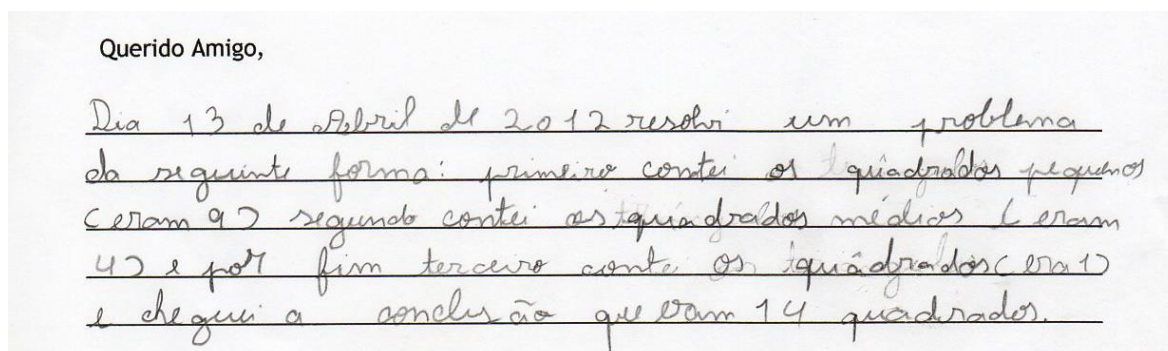 Querido Amigo,
Dia 13 de Abril de 2012 resolvi um problema
da seguinte forma: primeiro contei os quadrados pequenos
(eram 9) segundo contei os quadrados médios (eram
4) e por fim terceiro conte os quadrados (era 1)
e cheguei a conclusão que eram 14 quadrados.